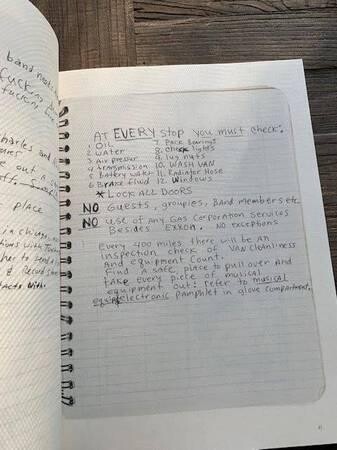 band needs
fuck
fucking
charles and
out a
PLACE
in chicago
and record store
AT EVERY Stop you must check:
1 Oil 7. Pack Bearings
2 Water 8. check lights
3 Air presser 9. lug nuts
4 transmission 10. WASH VAN
5 Battery water 11. Radiator Hose
6 Brake fluid 12. Windows
* LOCK ALL DOORS
NO Guests, groupies, BAnd members etc.
NO use of Any Gas Corporation Services
Besides Exxon. NO exceptions
Every 400 miles there will be An
inspection check of VAN Cleanliness
And equipment Count.
Find A safe place to pull over And
tAKE Every piece of musical
equipment out: refer to musical
electronic PAmphlet in glove compartment.